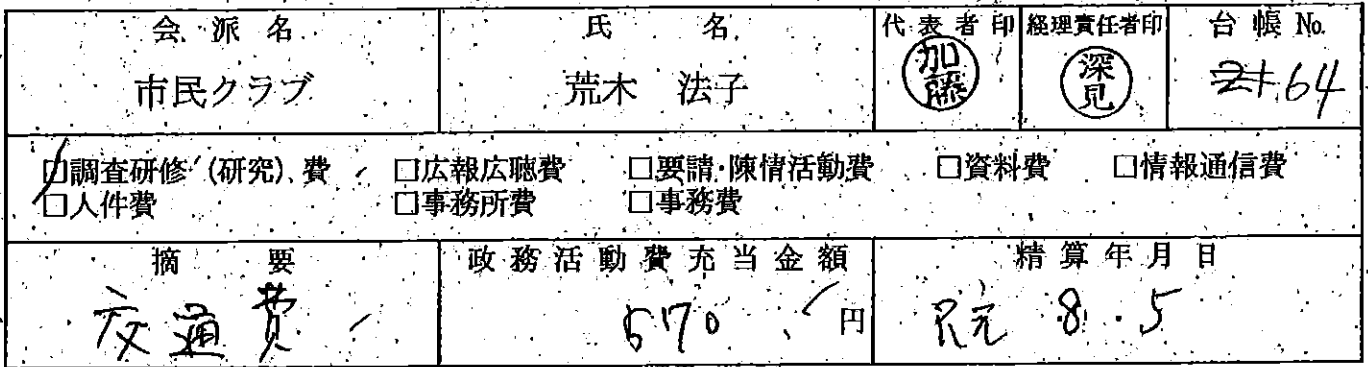 会派名 氏名 代表者印 経理責任者印 台帳No.
市民クラブ 荒木 法子 加藤 深見 21 64
□調査研修(研究)費 □広報広聴費 □要請・陳情活動費 □資料費 □情報通信費
□人件費 □事務所費 □事務費
摘要 政務活動費充当金額 精算年月日
交通費 570円 R元 8.5